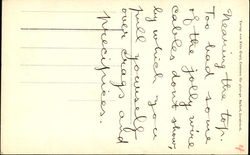 Nearing the top.
Too bad some
of the jolly wire
cables don't show,
by which you
pull yourself
over crags and
precipices.